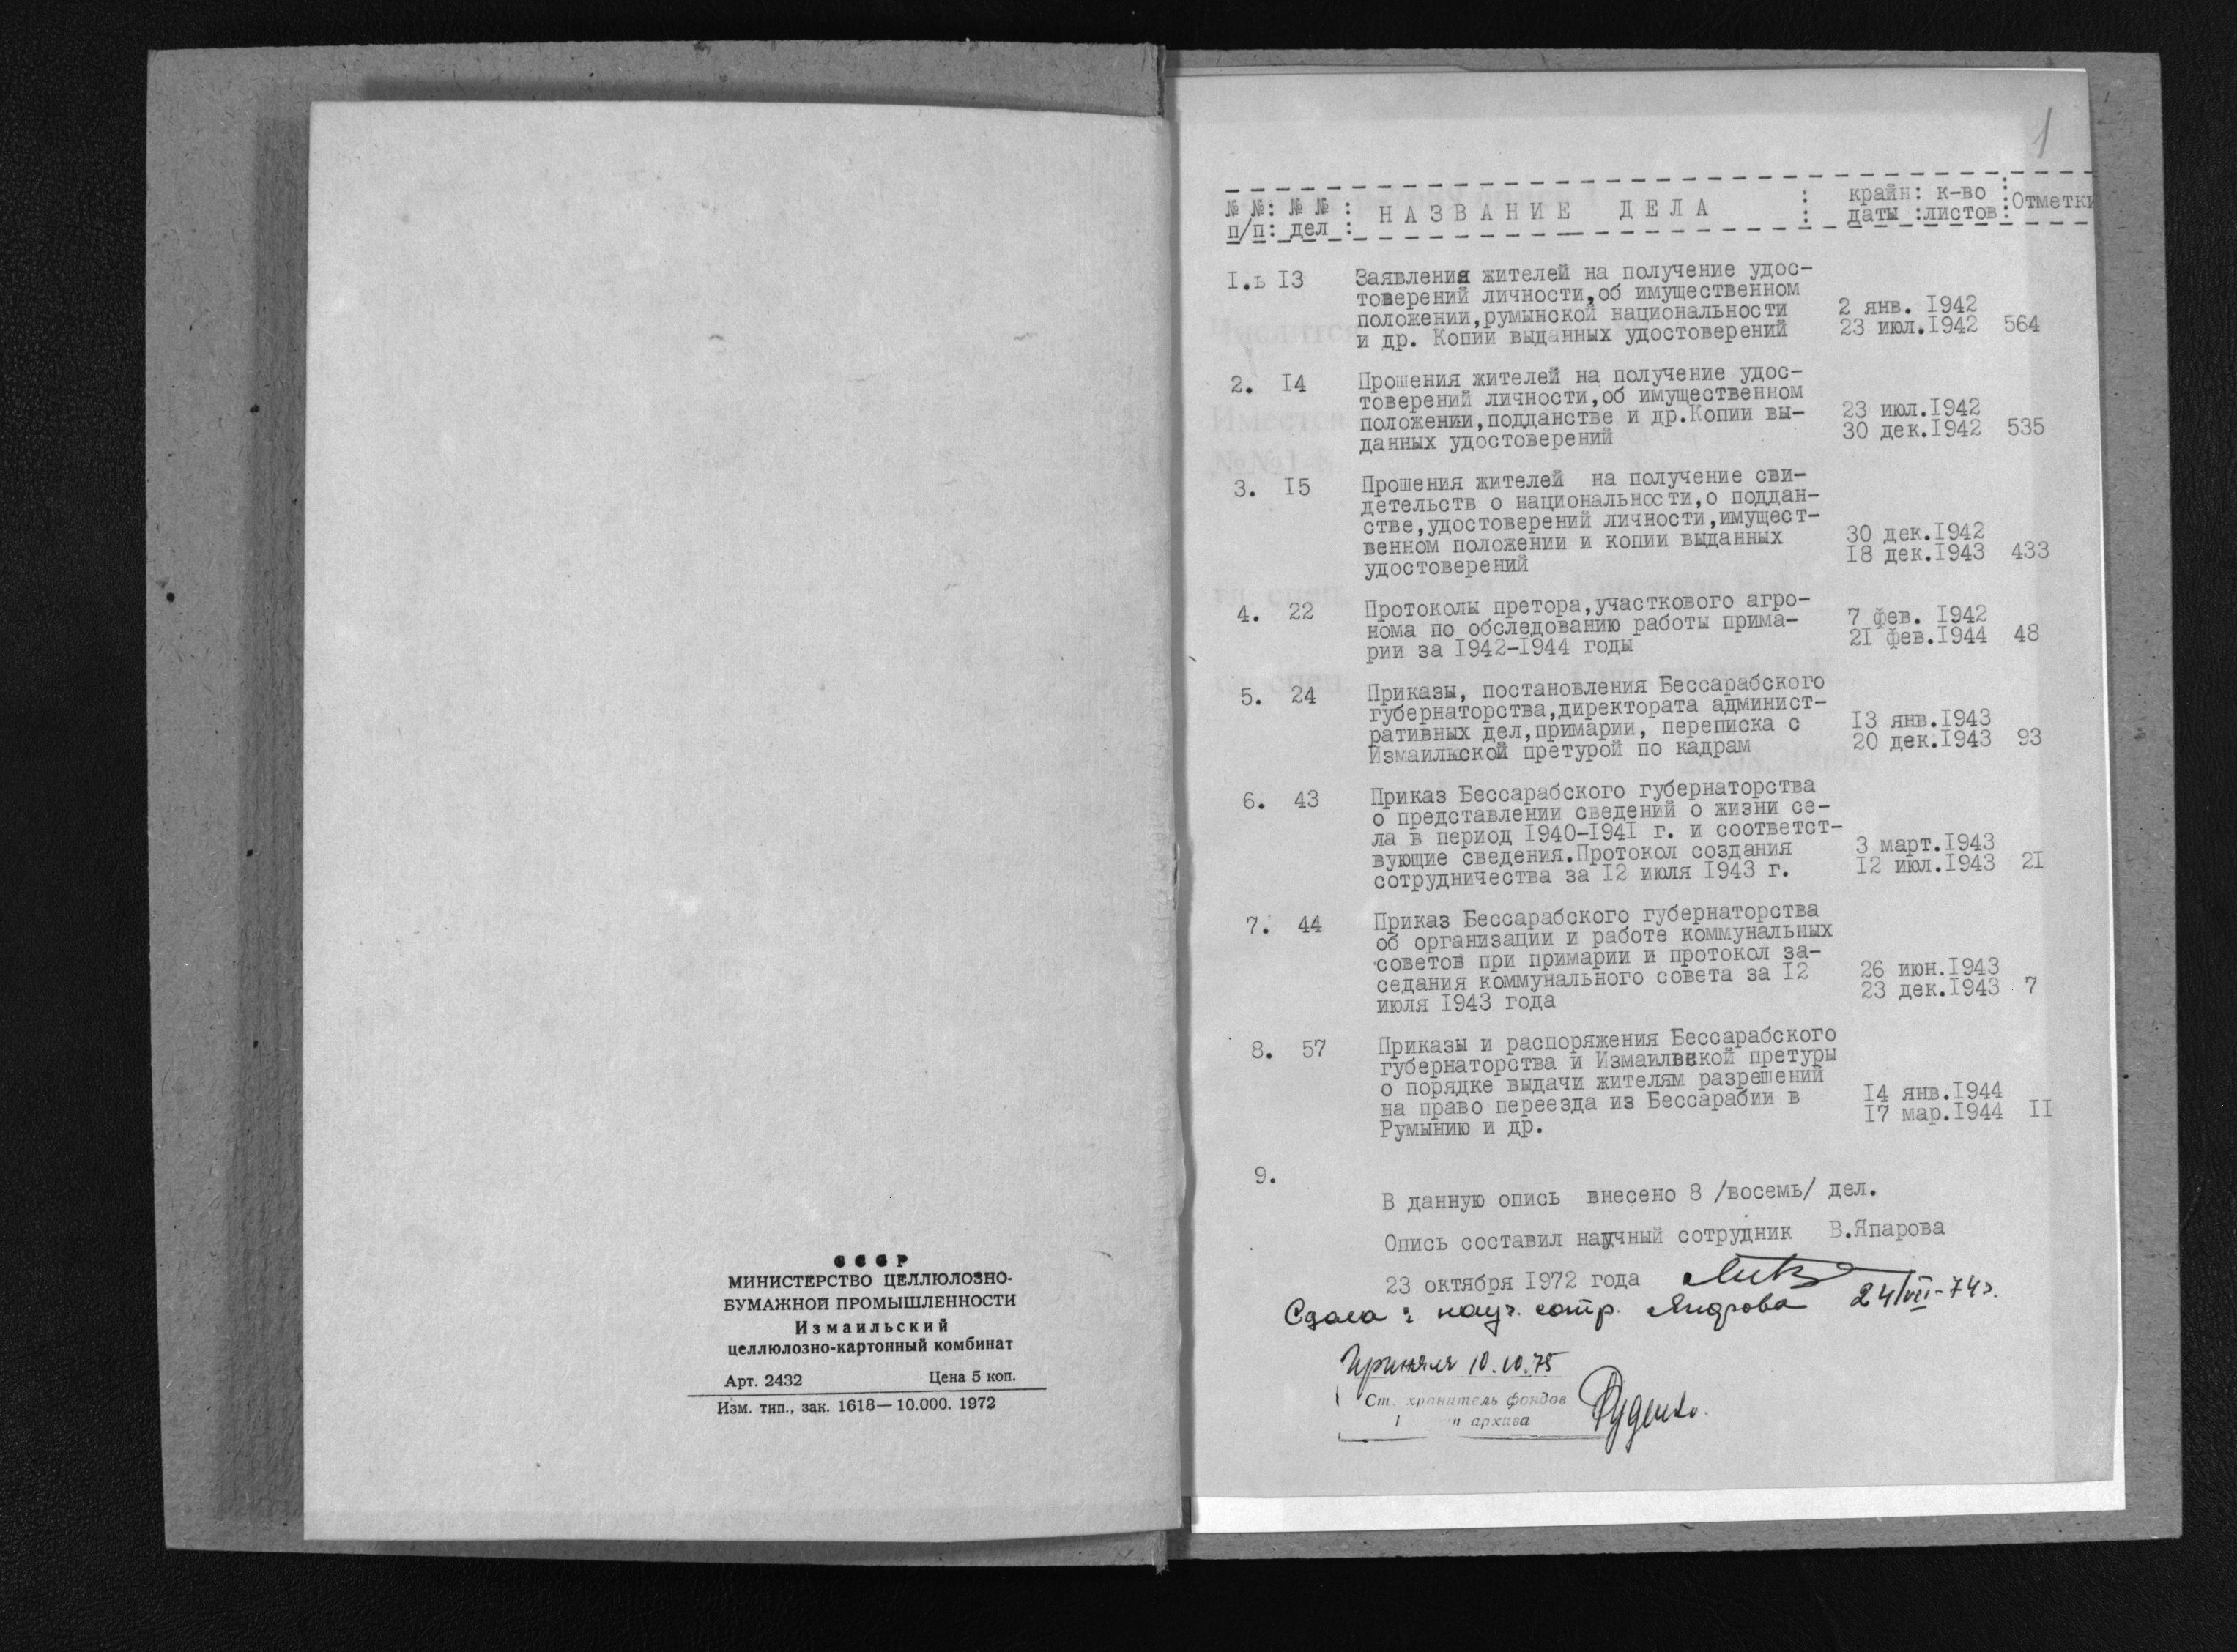 СССР
МИНИСТЕРСТВО ЦЕЛЛЮЛОЗНО-
БУМАЖНОЙ ПРОМЫШЛЕННОСТИ
Измаильский
целлюлозно-картонный комбинат
Арт. 2432 Цена 5 коп.
Изм. тип., зак. 1618—10.000. 1972
1
№ №: № №: НАЗВАНИЕ ДЕЛА : крайн: к-во :Отметки
п/п: дел : : даты :листов:
1.ь 13 Заявления жителей на получение удос-
товерений личности,об имущественном
положении,румынской национальности 2 янв. 1942
и др. Копии выданных удостоверений 23 июл.1942 564
2. 14 Прошения жителей на получение удос-
товерений личности,об имущественном
положении,подданстве и др.Копии вы- 23 июл.1942
данных удостоверений 30 дек.1942 535
3. 15 Прошения жителей на получение сви-
детельств о национальности,о поддан-
стве,удостоверений личности,имущест-
венном положении и копии выданных 30 дек.1942
удостоверений 18 дек.1943 433
4. 22 Протоколы претора,участкового агро-
нома по обследованию работы прима- 7 фев. 1942
рии за 1942-1944 годы 21 фев.1944 48
5. 24 Приказы, постановления Бессарабского
губернаторства,директората админист-
ративных дел,примарии, переписка с 13 янв.1943
Измаильской претурой по кадрам 20 дек.1943 93
6. 43 Приказ Бессарабского губернаторства
о представлении сведений о жизни се-
ла в период 1940-1941 г. и соответст-
вующие сведения.Протокол создания 3 март.1943
сотрудничества за 12 июля 1943 г. 12 июл.1943 21
7. 44 Приказ Бессарабского губернаторства
об организации и работе коммунальных
советов при примарии и протокол за-
седания коммунального совета за 12 26 июн.1943
июля 1943 года 23 дек.1943 7
8. 57 Приказы и распоряжения Бессарабского
губернаторства и Измаильской претуры
о порядке выдачи жителям разрешений
на право переезда из Бессарабии в 14 янв.1944
Румынию и др. 17 мар.1944 11
9.
В данную опись внесено 8 /восемь/ дел.
Опись составил научный сотрудник В.Япарова
23 октября 1972 года
Сдала: науч. сотр. Япарова 24/VII-74г.
Приняла 10.10.75
Ст. хранитель фондов
архива
Руденко.